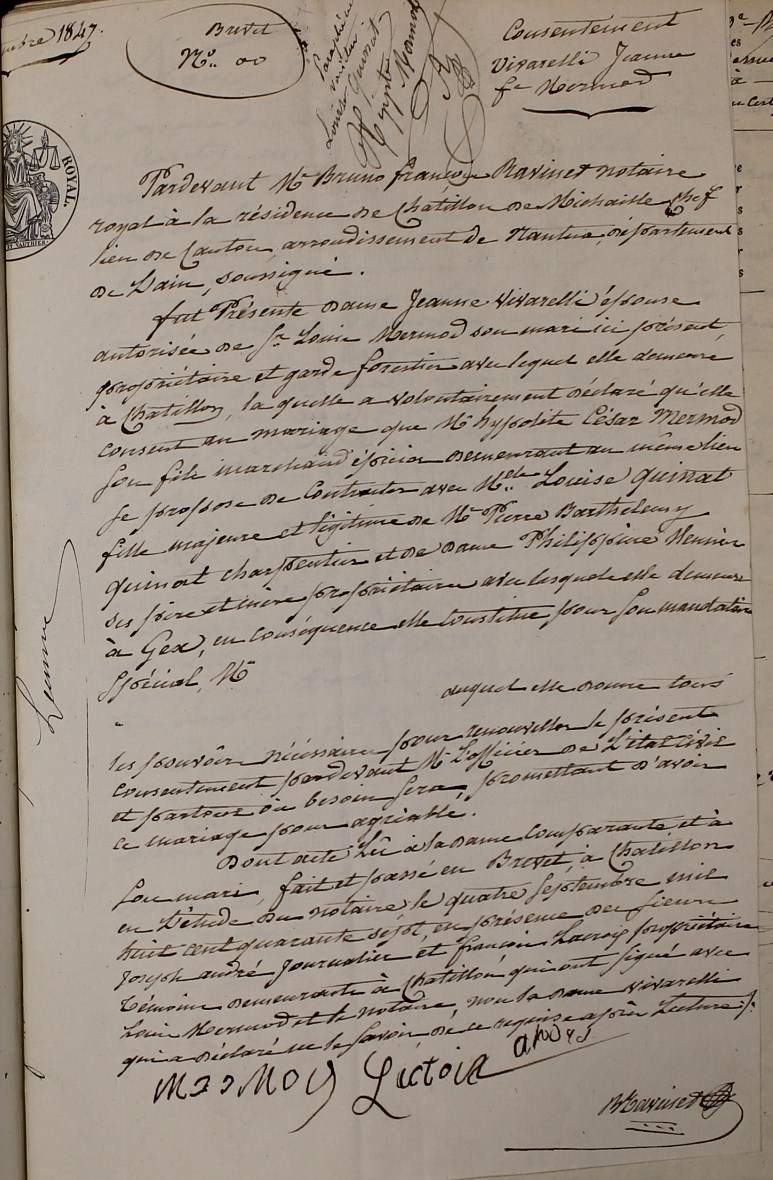 1847.
Brevet
N° 00
Consentement
Vivarelli Jeanne
fe Mermod
ROYAL.
Pardevant Me Bruno françois Ravinet notaire
royal à la résidence de Châtillon de Michaille Chef
lieu de Canton, arrondissement de Nantua, département
de L'ain, soussigné.
fut Présente dame Jeanne Vivarelli épouse
autorisée de Sr Louis Mermod son mari ici présent,
propriétaire et garde forestier avec lequel elle demeure
à Chatillon, la quelle a volontairement déclaré qu'elle
consent au mariage que Mr hyppolite César Mermod
son fils marchand épicier demeurant au même lieu
se propose de Contracter avec Melle Louise quinat
fille majeure et légitime de Mr Pierre Barthelemy
quinat charpentier et de dame Philippine
ses père et mère propriétaires avec lesquels elle demeure
à Gex, en conséquence elle Constitue pour son mandataire
Spécial, Mr
auquel elle donne tous
les pouvoirs nécessaires pour renouveller le présent
consentement pardevant Mr L'officier de L'état civil
et partout où besoin sera, promettant d'avoir
ce mariage pour agréable.
Dont acte: Lû à la dame Comparante, et à
son mari, fait et passé en Brevet, à Chatillon
en L'étude du notaire le quatre Septembre mil
huit cent quarante sept, en présence des sieurs
Joseph andré journalier et françois Lacroix propriétaire
témoins demeurants à Chatillon qui ont signé avec
Louis Mermod et le notaire, non la dame vivarelli
qui a déclaré ne le savoir de ce requise après Lecture